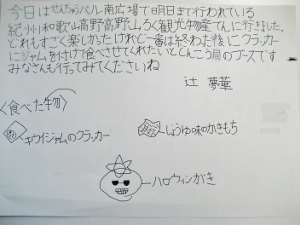 今日はせんちゅうパル南広場で明日まで行われている
紀州和歌山高野高野山ろく観光物産てんに行きました。
どれもすごく楽しかったけれど一番は終わった後にクラッカー
にジャムを付けて食べさせてくれたいと こんこう店のブースです
みなさんも行ってみてくださいね
辻 夢華
〈食べた物〉
キウイジャムのクラッカー
しょうゆ味のかきもち
ハロウィンかき